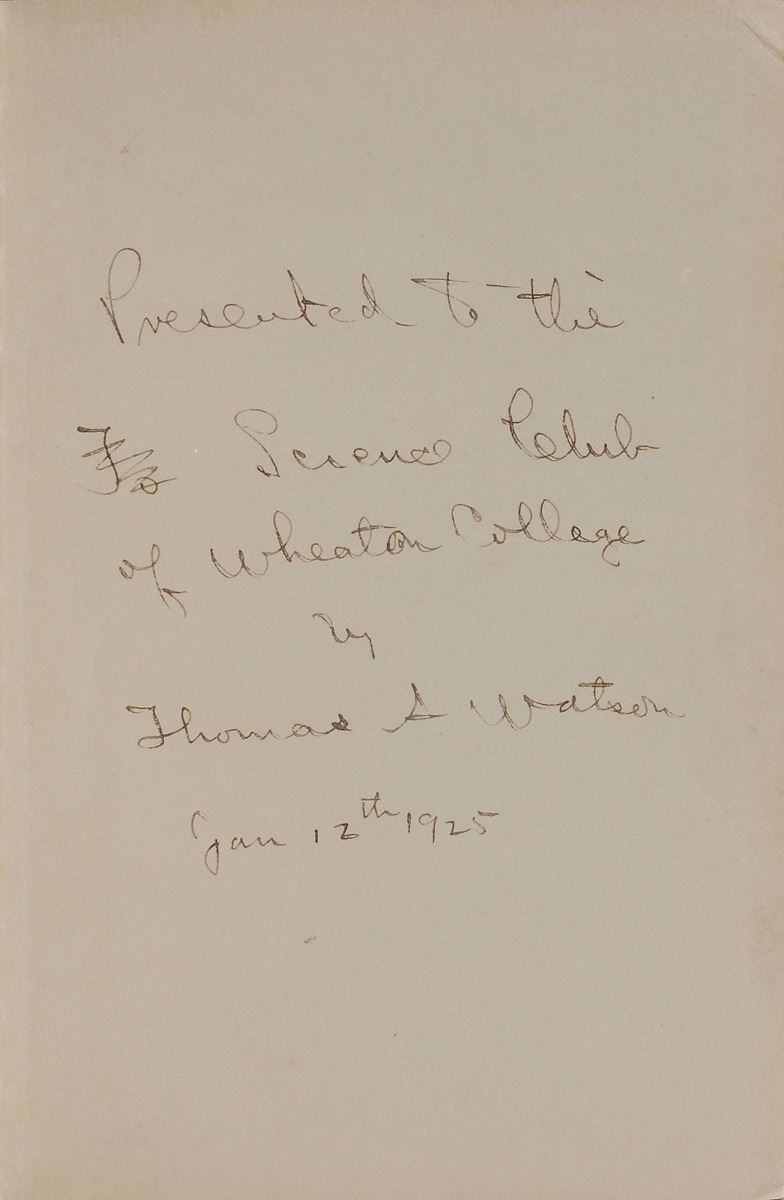 Presented to the
Science Club
of Wheaton College
by
Thomas A Watson
Jan 12th 1925